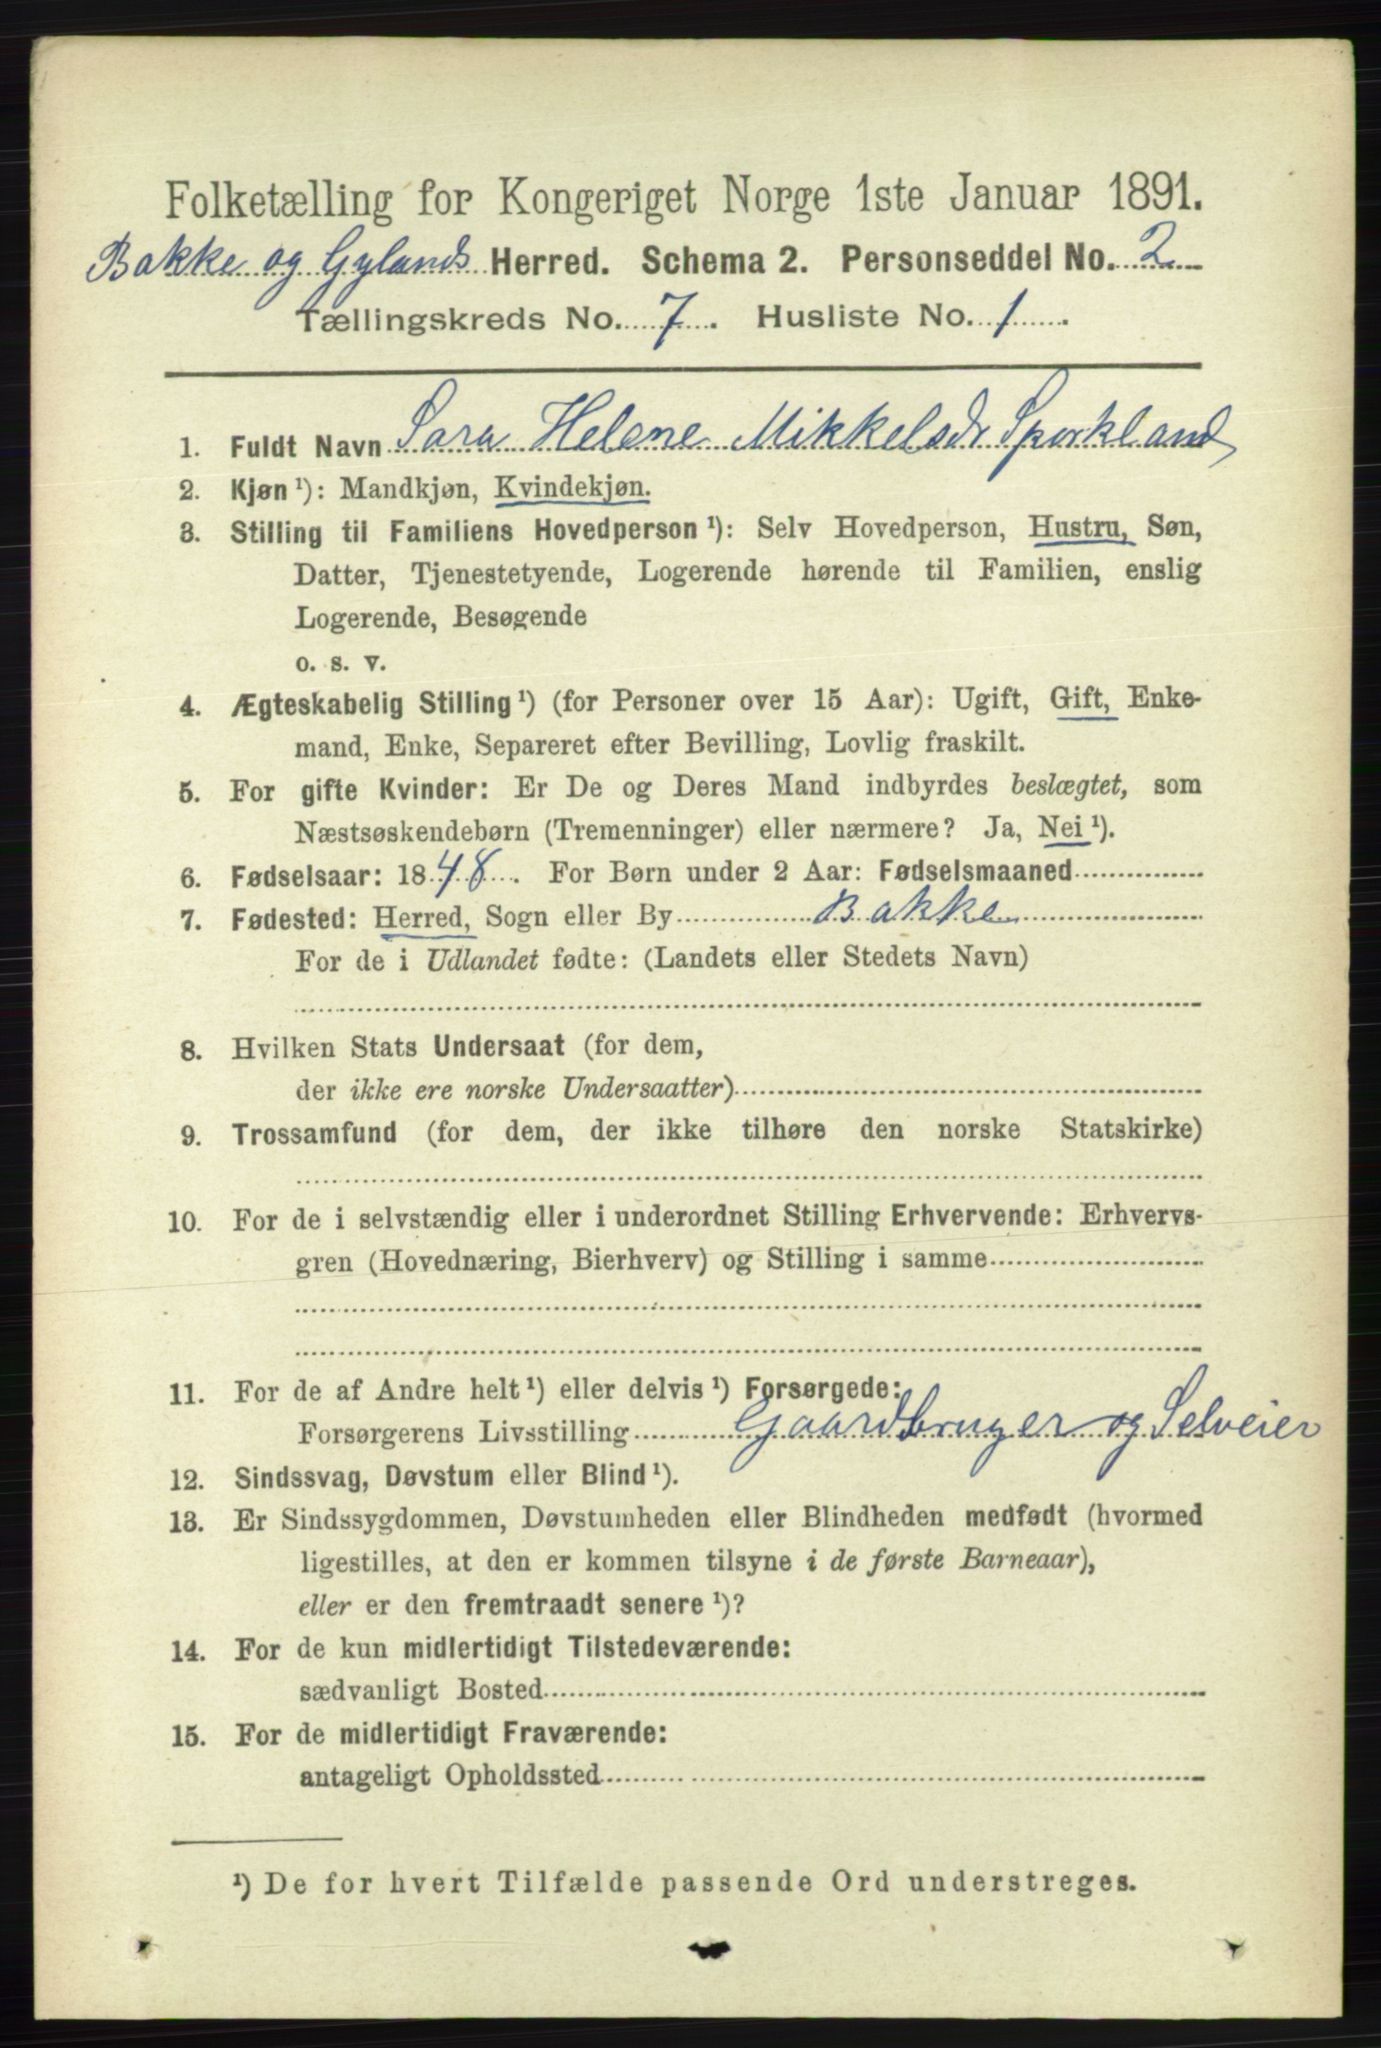 Folketælling for Kongeriget Norge 1ste Januar 1891.
Bakke og Gylands Herred. Schema 2. Personseddel No. 2
Tællingskreds No. 7. Husliste No. 1.
1. Fuldt Navn Sara Helene Mikkelsdr Sporkland
2. Kjøn ¹): Mandkjøn, Kvindekjøn.
3. Stilling til Familiens Hovedperson ¹): Selv Hovedperson, Hustru, Søn,
Datter, Tjenestetyende, Logerende hørende til Familien, enslig
Logerende, Besøgende
o. s. v.
4. Ægteskabelig Stilling ¹) (for Personer over 15 Aar): Ugift, Gift, Enke-
mand, Enke, Separeret efter Bevilling, Lovlig fraskilt.
5. For gifte Kvinder: Er De og Deres Mand indbyrdes beslægtet, som
Næstsøskendebørn (Tremenninger) eller nærmere? Ja, Nei ¹).
6. Fødselsaar: 1848. For Børn under 2 Aar: Fødselsmaaned
7. Fødested: Herred, Sogn eller By Bakke
For de i Udlandet fødte: (Landets eller Stedets Navn)
8. Hvilken Stats Undersaat (for dem,
der ikke ere norske Undersaatter)
9. Trossamfund (for dem, der ikke tilhøre den norske Statskirke)
10. For de i selvstændig eller i underordnet Stilling Erhvervende: Erhvervs-
gren (Hovednæring, Bierhverv) og Stilling i samme
11. For de af Andre helt ¹) eller delvis ¹) Forsørgede:
Forsørgerens Livsstilling Gaardbruger og Selveier
12. Sindssvag, Døvstum eller Blind ¹).
13. Er Sindssygdommen, Døvstumheden eller Blindheden medfødt (hvormed
ligestilles, at den er kommen tilsyne i de første Barneaar),
eller er den fremtraadt senere ¹)?
14. For de kun midlertidigt Tilstedeværende:
sædvanligt Bosted
15. For de midlertidigt Fraværende:
antageligt Opholdssted
¹) De for hvert Tilfælde passende Ord understreges.